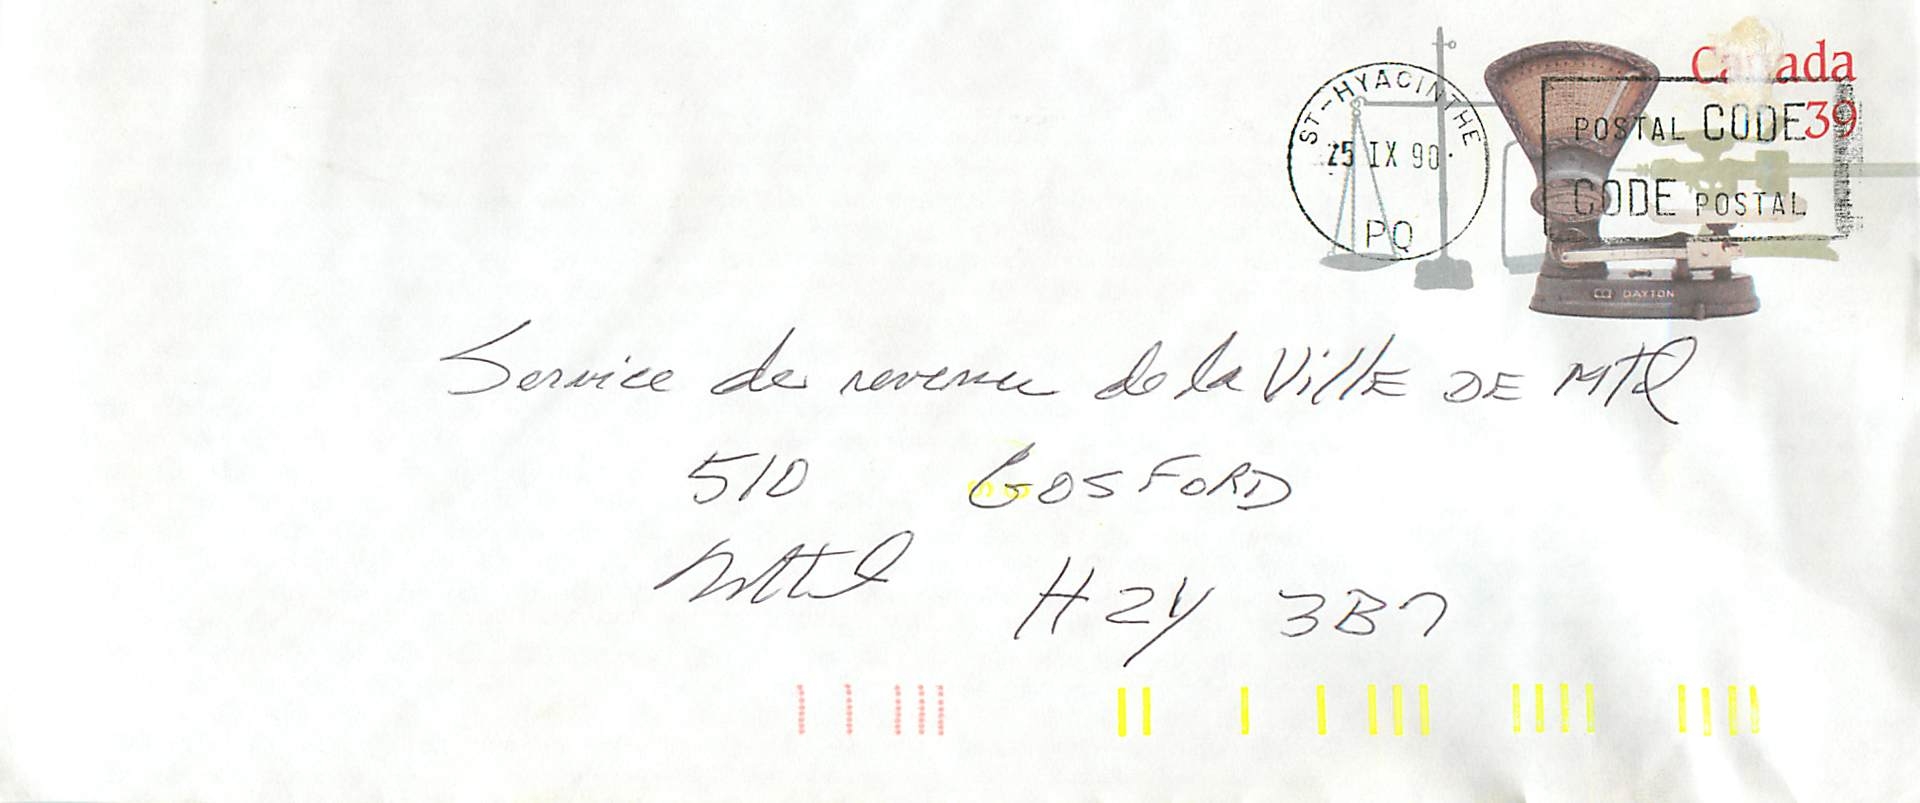 Canada
39
ST-HYACINTHE
25 IX 90
PQ
POSTAL CODE
CODE POSTAL
DAYTON
Service de revenu de la VillE DE MTl
510 GOSFORD
Mtl H2Y 3B7